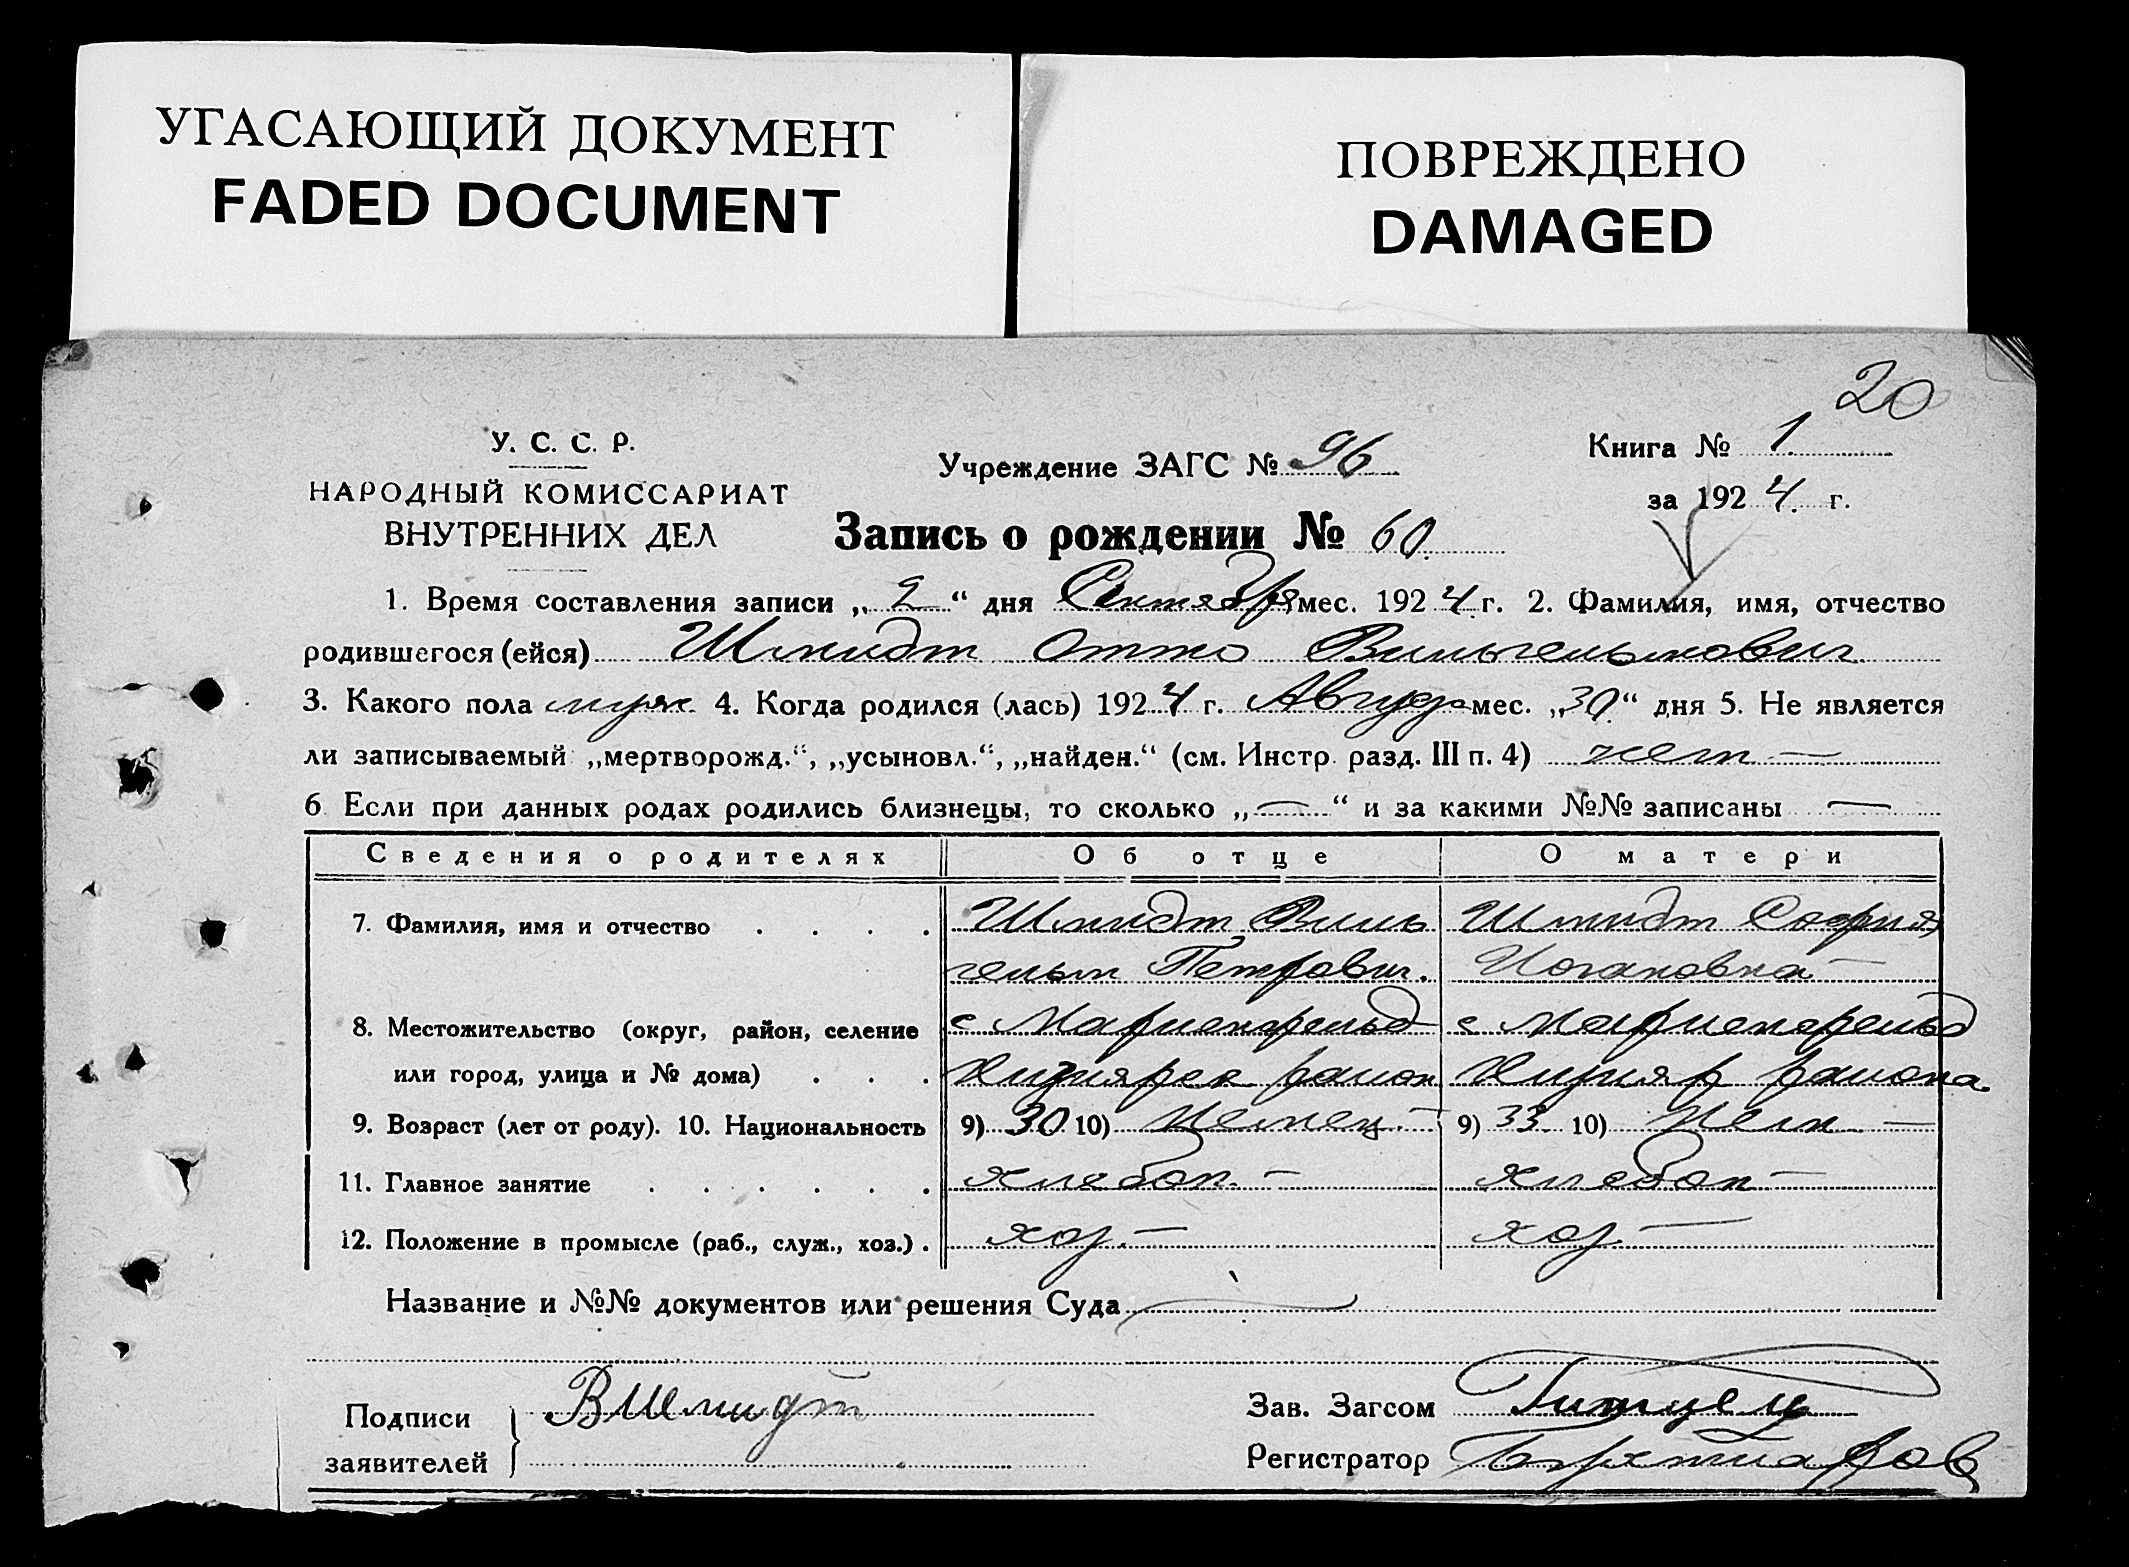 УГАСАЮЩИЙ ДОКУМЕНТ
FADED DOCUMENT
ПОВРЕЖДЕНО
DAMAGED
20
У. С. С. Р.
НАРОДНЫЙ КОМИССАРИАТ
ВНУТРЕННИХ ДЕЛ
Учреждение ЗАГС № 96
Книга № 1
за 1924 г.
Запись о рождении № 60.
1. Время составления записи „ 2 “ дня Сентября мес. 1924 г. 2. Фамилия, имя, отчество
родившегося (ейся) Шмидт Отто Вильгельмович
3. Какого пола муж. 4. Когда родился (лась) 1924 г. Август мес. „30“ дня 5. Не является
ли записываемый „мертворожд.“, „усыновл.“, „найден.“ (см. Инстр. разд. III п. 4) нет —
6 Если при данных родах родились близнецы, то сколько „ — “ и за какими №№ записаны —
Сведения о родителях Об отце О матери
7. Фамилия, имя и отчество . . . . Шмидт Виль Шмидт София
гельм Петрович. Иогановна —
8. Местожительство (округ, район, селение с Мариенфельд с Мариенфельд
или город, улица и № дома) . . . район района
9. Возраст (лет от роду). 10. Национальность 9) 30 10) Немец — 9) 33 10) Нем —
11. Главное занятие . . . . . . хлебоп. — хлебоп —
12. Положение в промысле (раб., служ., хоз.) . хоз. — хоз. —
Название и №№ документов или решения Суда
Подписи
заявителей
ВШмидт
Зав. Загсом
Регистратор